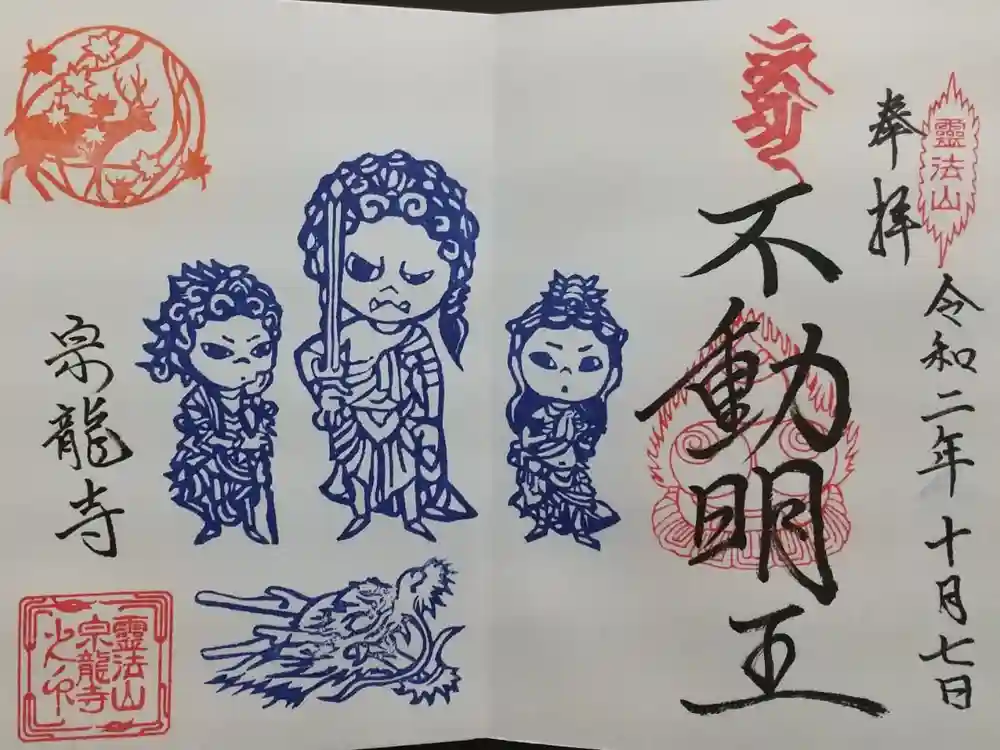 奉拝
靈法山
令和二年十月七日
不動明王
宗龍寺
靈法山
宗龍寺